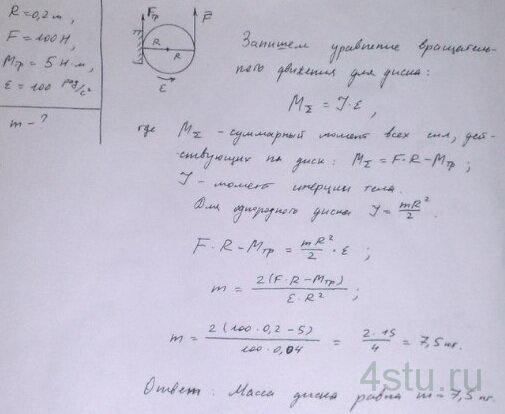 R = 0,2 м,
F = 100 Н,
Mтр = 5 Н·м,
ε = 100 рад/с²
m - ?
Fтр
F
R
R
ε
Запишем уравнение вращатель-
ного движения для диска:
M_Σ = J·ε,
где M_Σ - суммарный момент всех сил, дей-
ствующих на диск: M_Σ = F·R - Mтр;
J - момент инерции тела.
Для однородного диска J = mR²/2.
F·R - Mтр = mR²/2 · ε;
m = 2(F·R - Mтр)/ε·R²;
m = 2(100·0,2-5)/100·0,04 = 2·15/4 = 7,5 кг.
4stu.ru
Ответ: Масса диска равна m = 7,5 кг.